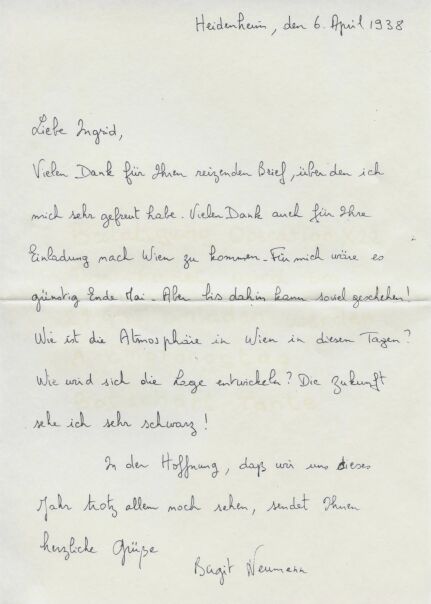 Heidenheim, den 6. April 1938
Liebe Ingrid,
Vielen Dank für Ihren reizenden Brief, über den ich
mich sehr gefreut habe. Vielen Dank auch für Ihre
Einladung nach Wien zu kommen. Für mich wäre es
günstig Ende Mai. Aber bis dahin kann soviel geschehen!
Wie ist die Atmosphäre in Wien in diesen Tagen?
Wie wird sich die Lage entwickeln? Die Zukunft
sehe ich sehr schwarz!
In der Hoffnung, daß wir uns dieses
Jahr trotz allem noch sehen, sendet Ihnen
herzliche Grüße
Birgit Neumann